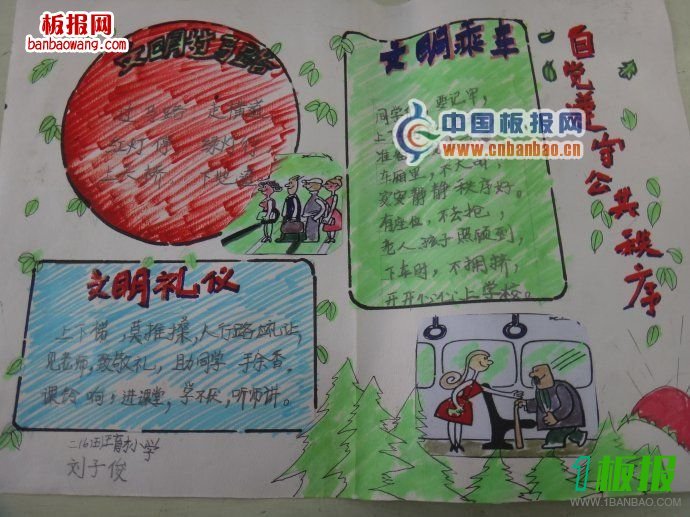 板报网
banbaowang.com
文明过马路
过马路 走横道
红灯停 绿灯行
上天桥 下地道
文明乘车
中国板报网
www.cnbanbao.cn
同学 要记牢，
上下
准备
车厢里，不大闹，
安安静静秩序好。
有座位，不去抢，
老人孩子照顾到，
下车时，不拥挤，
开开心心上学校。
自觉遵守公共秩序
文明礼仪
上下楼，莫推操，人行路 礼让，
见老师，致敬礼，助同学 手余香，
课铃响，进课堂，学不厌，听师讲。
小学
刘子俊
1板报
WWW.1BANBAO.COM